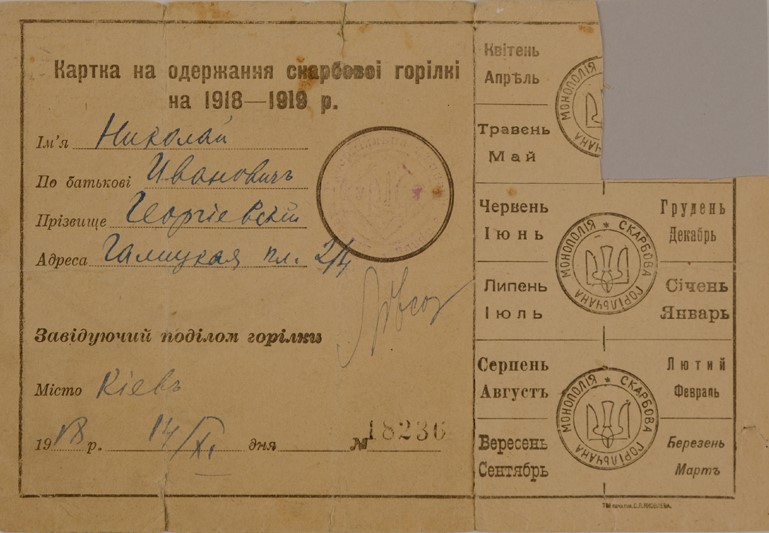 Картка на одержання скарбової горілкі
на 1918—1919 р.
Ім'я Николай
По батькові Ивановичъ
Прізвище Георгіевскій
Адреса Галицкая пл. 2/4
Завідуючий поділом горілки
Місто Кіевъ
1918 р. 14/XI дня № 18236
Квітень
Апрѣль
Травень
Май
Червень
Іюнь
Липень
Іюль
Серпень
Августъ
Вересень
Сентябрь
МОНОПОЛІЯ
ГОРІЛЬЧАНА
МОНОПОЛІЯ * СКАРБОВА
ГОРІЛЬЧАНА
МОНОПОЛІЯ * СКАРБОВА
ГОРІЛЬЧАНА
Грудень
Декабрь
Січень
Январь
Лютий
Февраль
Березень
Мартъ